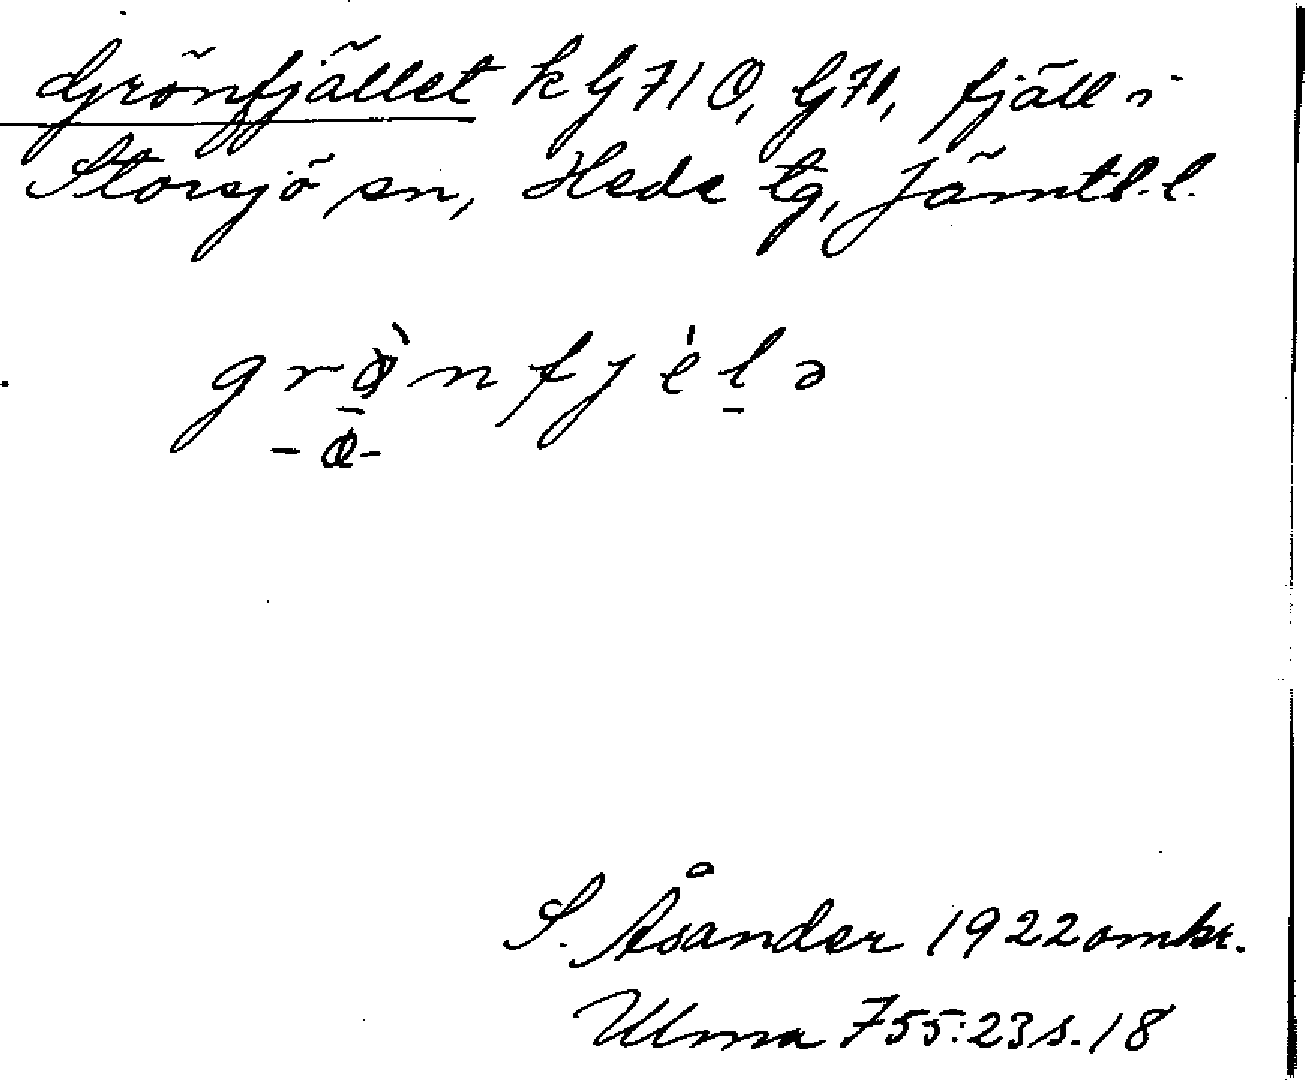 Grönfjället k G 71 Ö, G 71, fjäll i
Storsjö sn, Hede tg, Jämtl.l.
grø̀nfjélə
-ø-
S. Åsander 1922 omkr.
Ulma 755:23 s.18